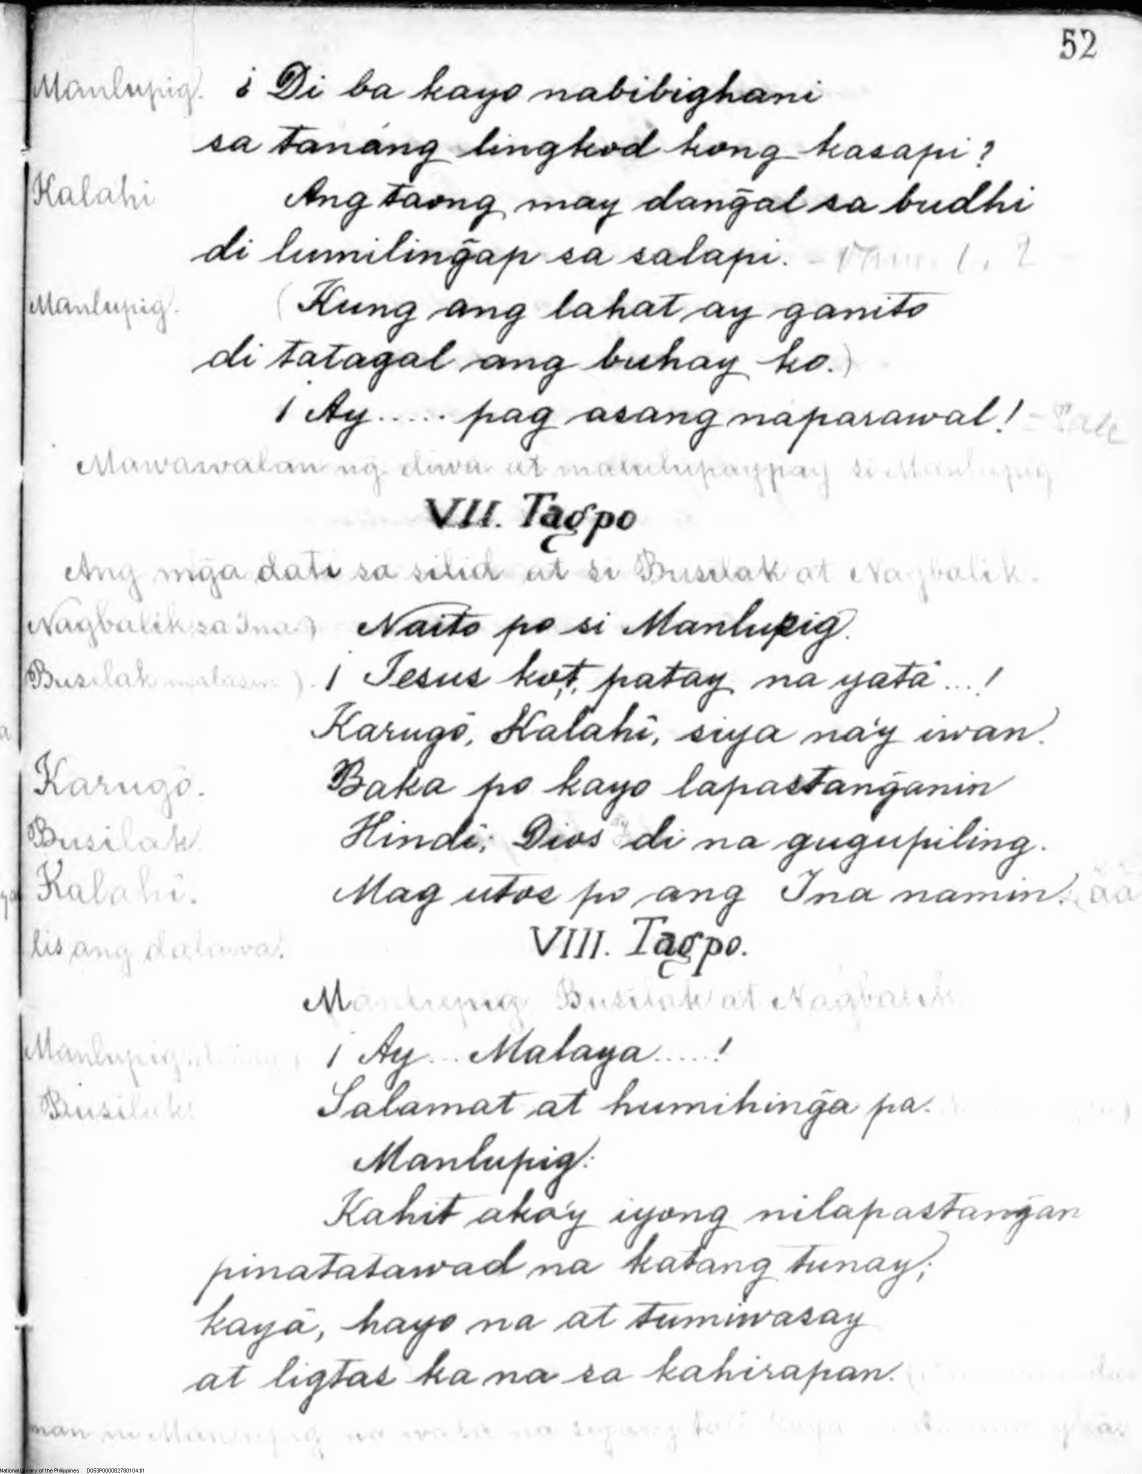 52
Manlupig. ¿ Di ba kayo nabibighani
sa tanáng lingkod kong kasapi?
Kalahi Ang taong may dang̃al sa budhi
di lumiling̃ap sa salapi.
Manlupig. (Kung ang lahat ay ganito
di tatagal ang buhay ko.)
¡ Ay..... pag asang naparawal!
Mawawalan ng diwa at malulupaypay si Manlupig
VII. Tagpo
Ang mg̃a dati sa silid at si Busilak at Nagbalik.
Nagbalik sa Ina) Naito po si Manlupig.
Busilak ). ¡ Jesus ko't, patay na yatá...!
Karugô, Kalahî, siya na'y iwan.
Karugô. Baka po kayo lapastang̃anin
Busilak Hindî; Dios di na gugupiling.
Kalahî. Mag utos po ang Ina namin. áa
lis ang dalawa.
VIII. Tagpo.
Manlupig Busilak at Nagbalik
Manlupig ¡ Ay... Malaya.....!
Busilak Salamat at humihing̃a pa.
Manlupig:
Kahit ako'y iyong nilapastang̃an
pinatatawad na katang tunay;
kayâ, hayo na at tumiwasay
at ligtas ka na sa kahirapan.
National Library of the Philippines